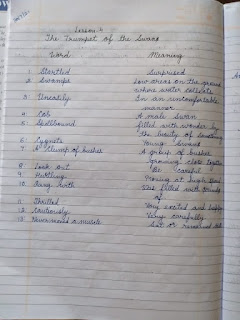 Lesson-4
The Trumpet of the Swans
Word Meaning
1 Startled Surprised
2 Swamps Low areas on the ground
where water collects
3 Uneasily In an uncomfortable
manner
4 Cob A male swan
5 Spellbound filled with wonder by
the beauty of something
6 Cygnets Young Swans
7 A clump of bushes A group of bushes
growing close together
8 Look out Be careful
9 Hurtling Moving at high speed
10 Rang with Was filled with sounds
of
11 Thrilled Very excited and happy
12 Cautiously Very carefully
13 Never moved a muscle Sat or remained still